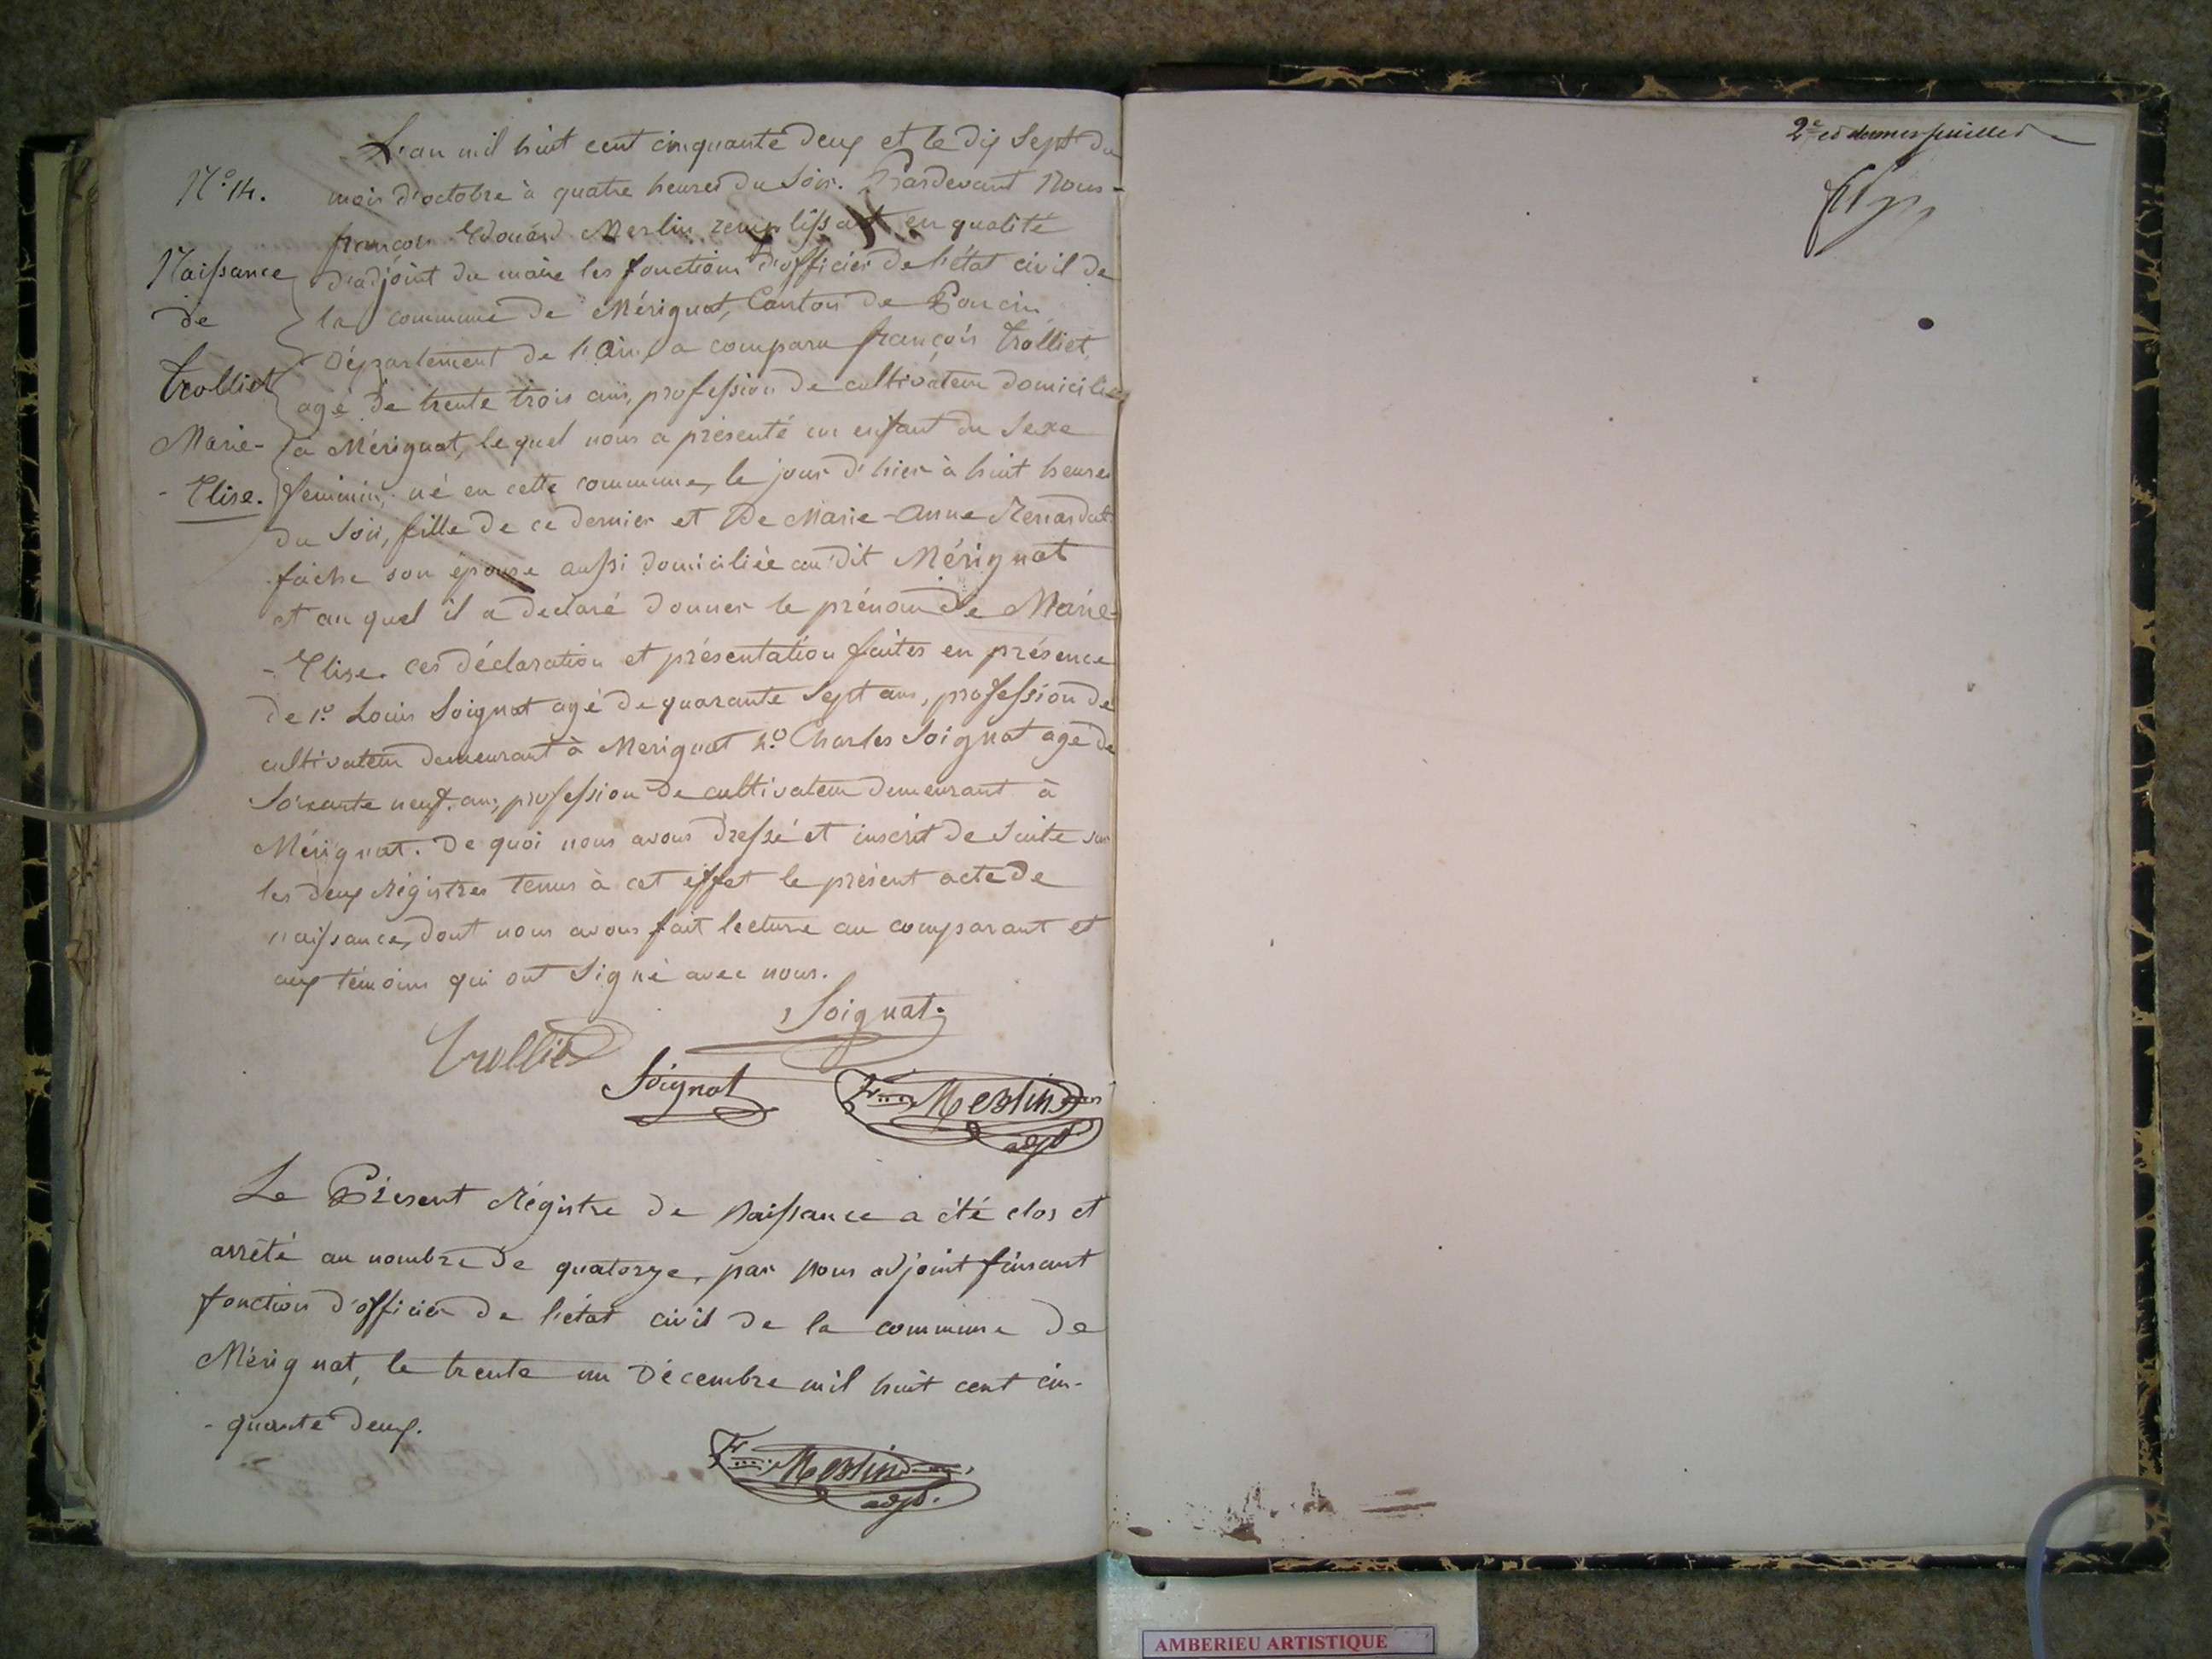 L'an mil huit cent cinquante deux et le dix Sept du
N.° 14.
mois d'octobre à quatre heures du Soir. Pardevant Nous
françois Edouard Merlin remplissant en qualité
Naissance
d'adjoint du maire les fonctions d'officier de l'état civil de
de
la commune de Mérignat, Canton de Poncin
Département de l'Ain, a comparu françois Trolliet,
Trolliet
agé de trente trois ans, profession de cultivateur domicilié
Marie-
à Mérignat, lequel nous a présenté un enfant du Sexe
- Elise.
feminin, né en cette commune, le jour d'hier à huit heures
du Soir, fille de ce dernier et De Marie-Anne Renardat
fâche son épouse aussi domiciliée au dit Mérignat
et au quel il a declaré donner le prénom de Marie-
- Elise. ces déclaration et présentation faites en présence
de 1.° Louis Soignat agé de quarante Sept ans, profession de
cultivateur demeurant à Merignat 2.° Charles Soignat agé de
Soixante neuf ans, profession de cultivateur demeurant à
Mérignat. De quoi nous avons dressé et inscrit de suite sur
les deux régistres tenus à cet effet le présent acte de
naissance, dont nous avons fait lecture au comparant et
aux témoins qui ont Signé avec nous.
Soignat.
Trolliet
Soignat
Merlin
adjt
Le Présent régistre de Naissance a été clos et
arrêté au nombre de quatorze, par Nous adjoint faisant
fonction d'officier de l'état civil de la commune de
Mérignat, le trente un Décembre mil huit cent cin-
- quante deux.
Merlin
adjt.
2e et dernier feuillet
AMBERIEU ARTISTIQUE